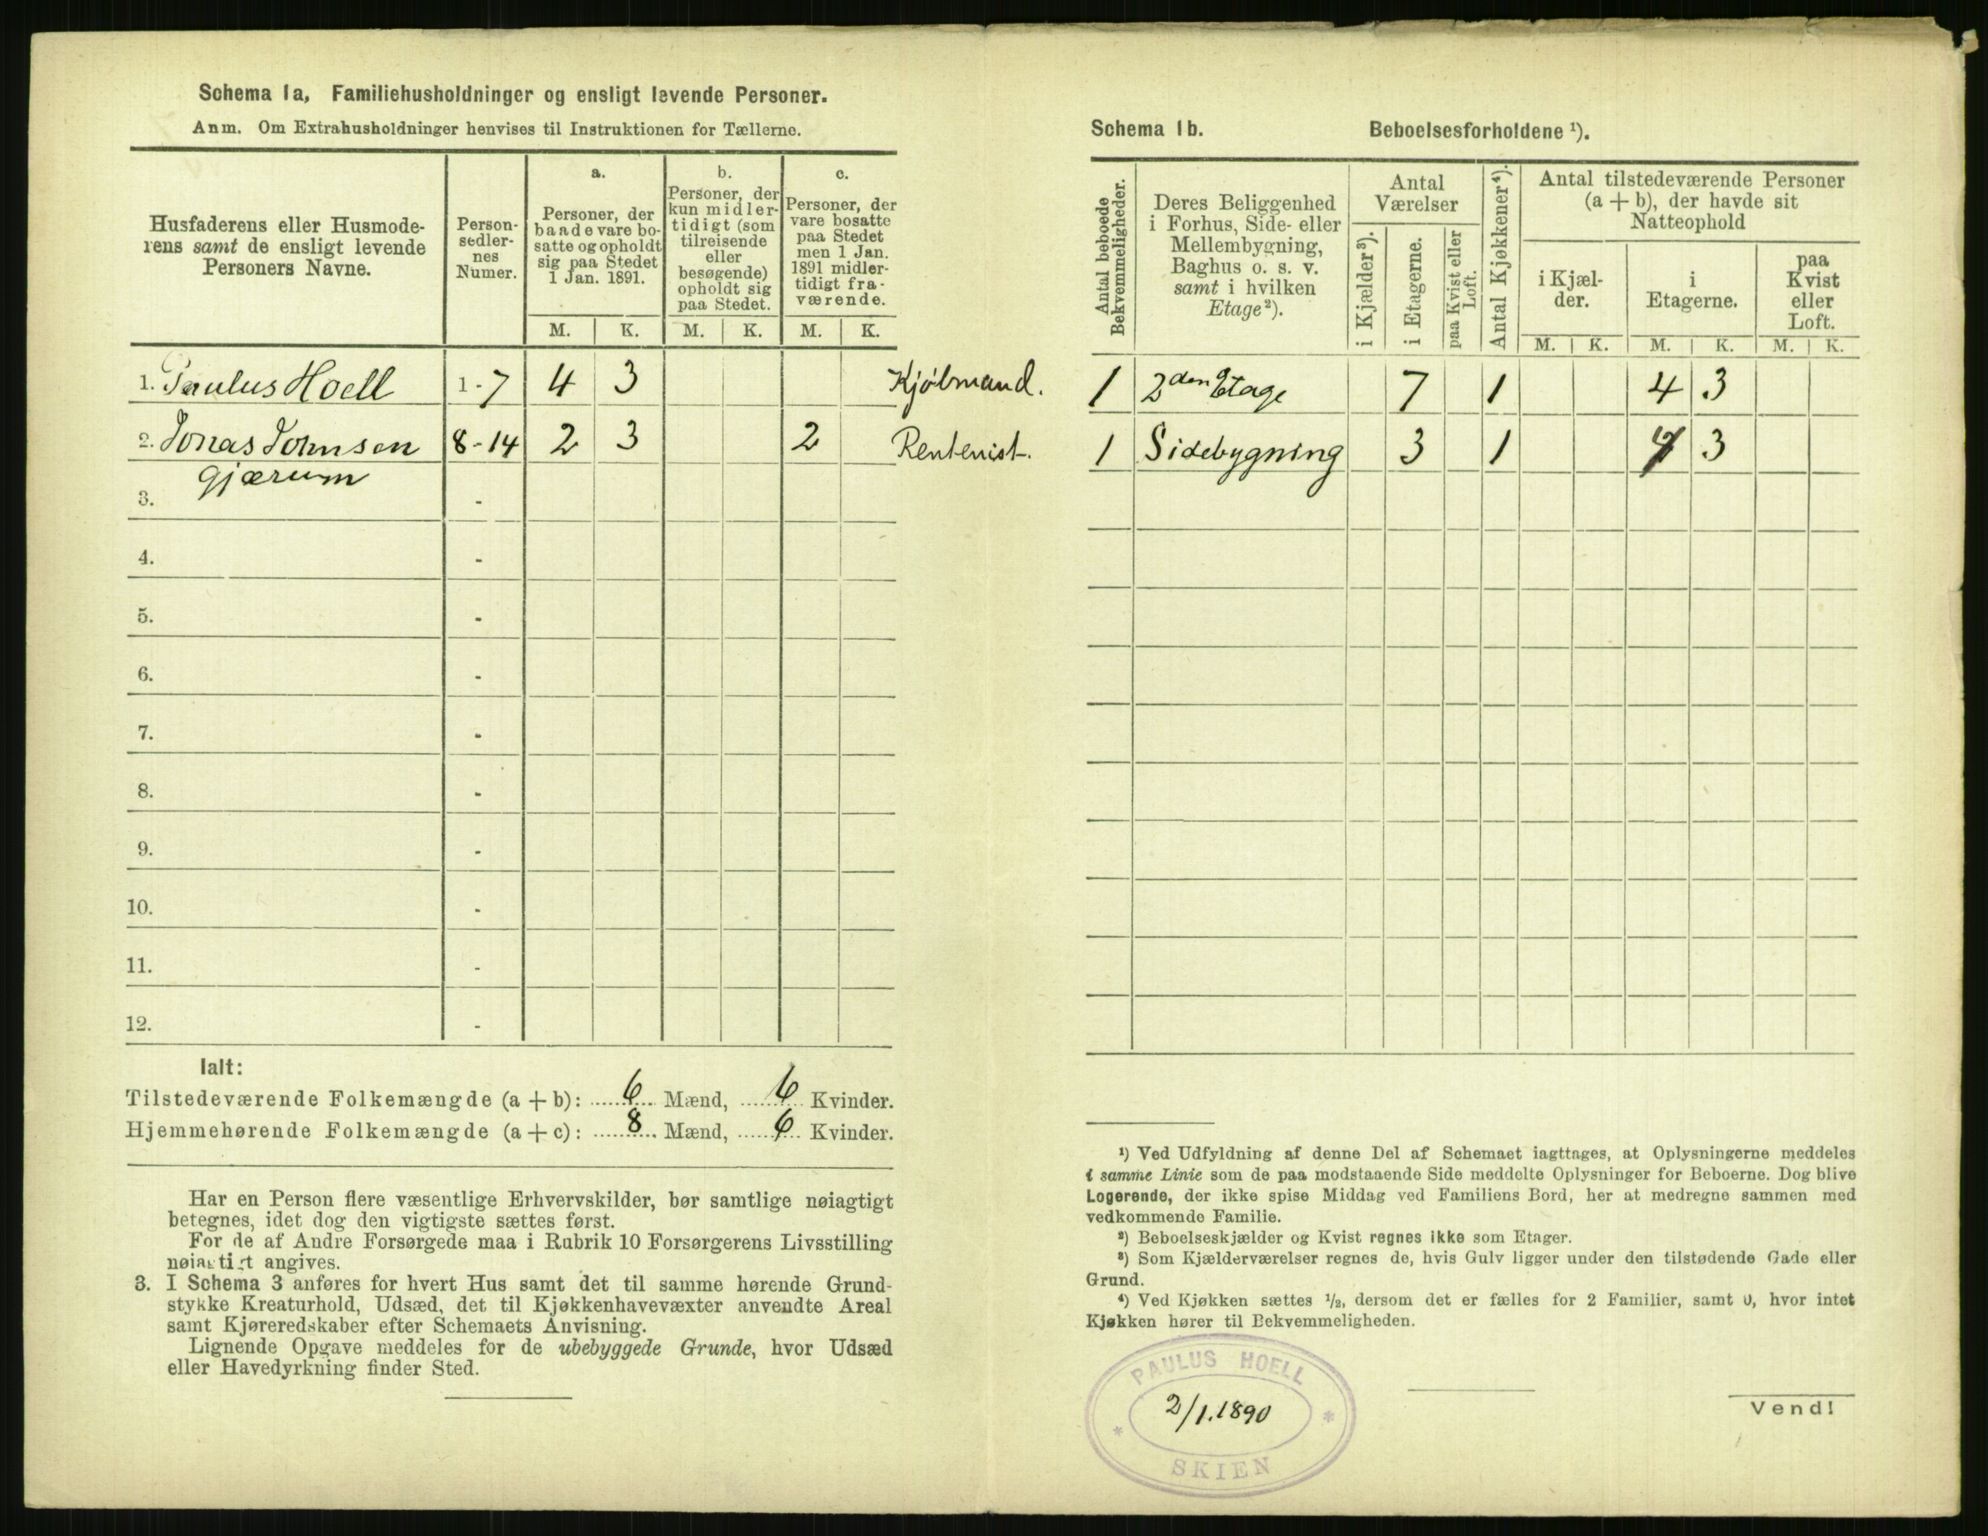 Schema 1a, Familiehusholdninger og ensligt levende Personer.
Anm. Om Extrahusholdninger henvises til Instruktionen for Tællerne.
Husfaderens eller Husmode-
rens samt de ensligt levende
Personers Navne.
Person-
sedler-
nes
Numer.
a.
Personer, der
baade vare bo-
satte og opholdt
sig paa Stedet
1 Jan. 1891.
b.
Personer, der
kun midler-
tidigt (som
tilreisende
eller
besøgende)
opholdt sig
paa Stedet.
c.
Personer, der
vare bosatte
paa Stedet
men 1 Jan.
1891 midler-
tidigt fra-
værende.
M. K. M. K. M. K.
1. Paulus Hoell 1-7 4 3 Kjøbmand.
2. Jonas Johnsen 8-14 2 3 2 Rentenist.
Gjærum
3. -
4. -
5. -
6. -
7. -
8. -
9. -
10. -
11. -
12. -
Ialt:
Tilstedeværende Folkemængde (a + b): 6 Mænd, 6 Kvinder.
Hjemmehørende Folkemængde (a + c): 8 Mænd, 6 Kvinder.
Har en Person flere væsentlige Erhvervskilder, bør samtlige nøiagtigt
betegnes, idet dog den vigtigste sættes først.
For de af Andre Forsørgede maa i Rubrik 10 Forsørgerens Livsstilling
nøiagtigt angives.
3. I Schema 3 anføres for hvert Hus samt det til samme hørende Grund-
stykke Kreaturhold, Udsæd, det til Kjøkkenhavevæxter anvendte Areal
samt Kjøreredskaber efter Schemaets Anvisning.
Lignende Opgave meddeles for de ubebyggede Grunde, hvor Udsæd
eller Havedyrkning finder Sted.
Schema 1b. Beboelsesforholdene ¹).
Antal beboede
Bekvemmeligheder.
Deres Beliggenhed
i Forhus, Side- eller
Mellembygning,
Baghus o. s. v.
samt i hvilken
Etage²).
Antal
Værelser
i Kjælder³).
i Etagerne.
paa Kvist eller
Loft.
Antal Kjøkkener⁴).
Antal tilstedeværende Personer
(a + b), der havde sit
Natteophold
i Kjæl-
der.
i
Etagerne.
paa
Kvist
eller
Loft.
M. K. M. K. M. K.
1 2den Etage 7 1 4 3
1 Sidebygning 3 1 3
¹) Ved Udfyldning af denne Del af Schemaet iagttages, at Oplysningerne meddeles
i samme Linie som de paa modstaaende Side meddelte Oplysninger for Beboerne. Dog blive
Logerende, der ikke spise Middag ved Familiens Bord, her at medregne sammen med
vedkommende Familie.
²) Beboelseskjælder og Kvist regnes ikke som Etager.
³) Som Kjælderværelser regnes de, hvis Gulv ligger under den tilstødende Gade eller
Grund.
⁴) Ved Kjøkken sættes ½, dersom det er fælles for 2 Familier, samt 0, hvor intet
Kjøkken hører til Bekvemmeligheden.
PAULUS HOELL
2/1.1890
* *
SKIEN
Vend!